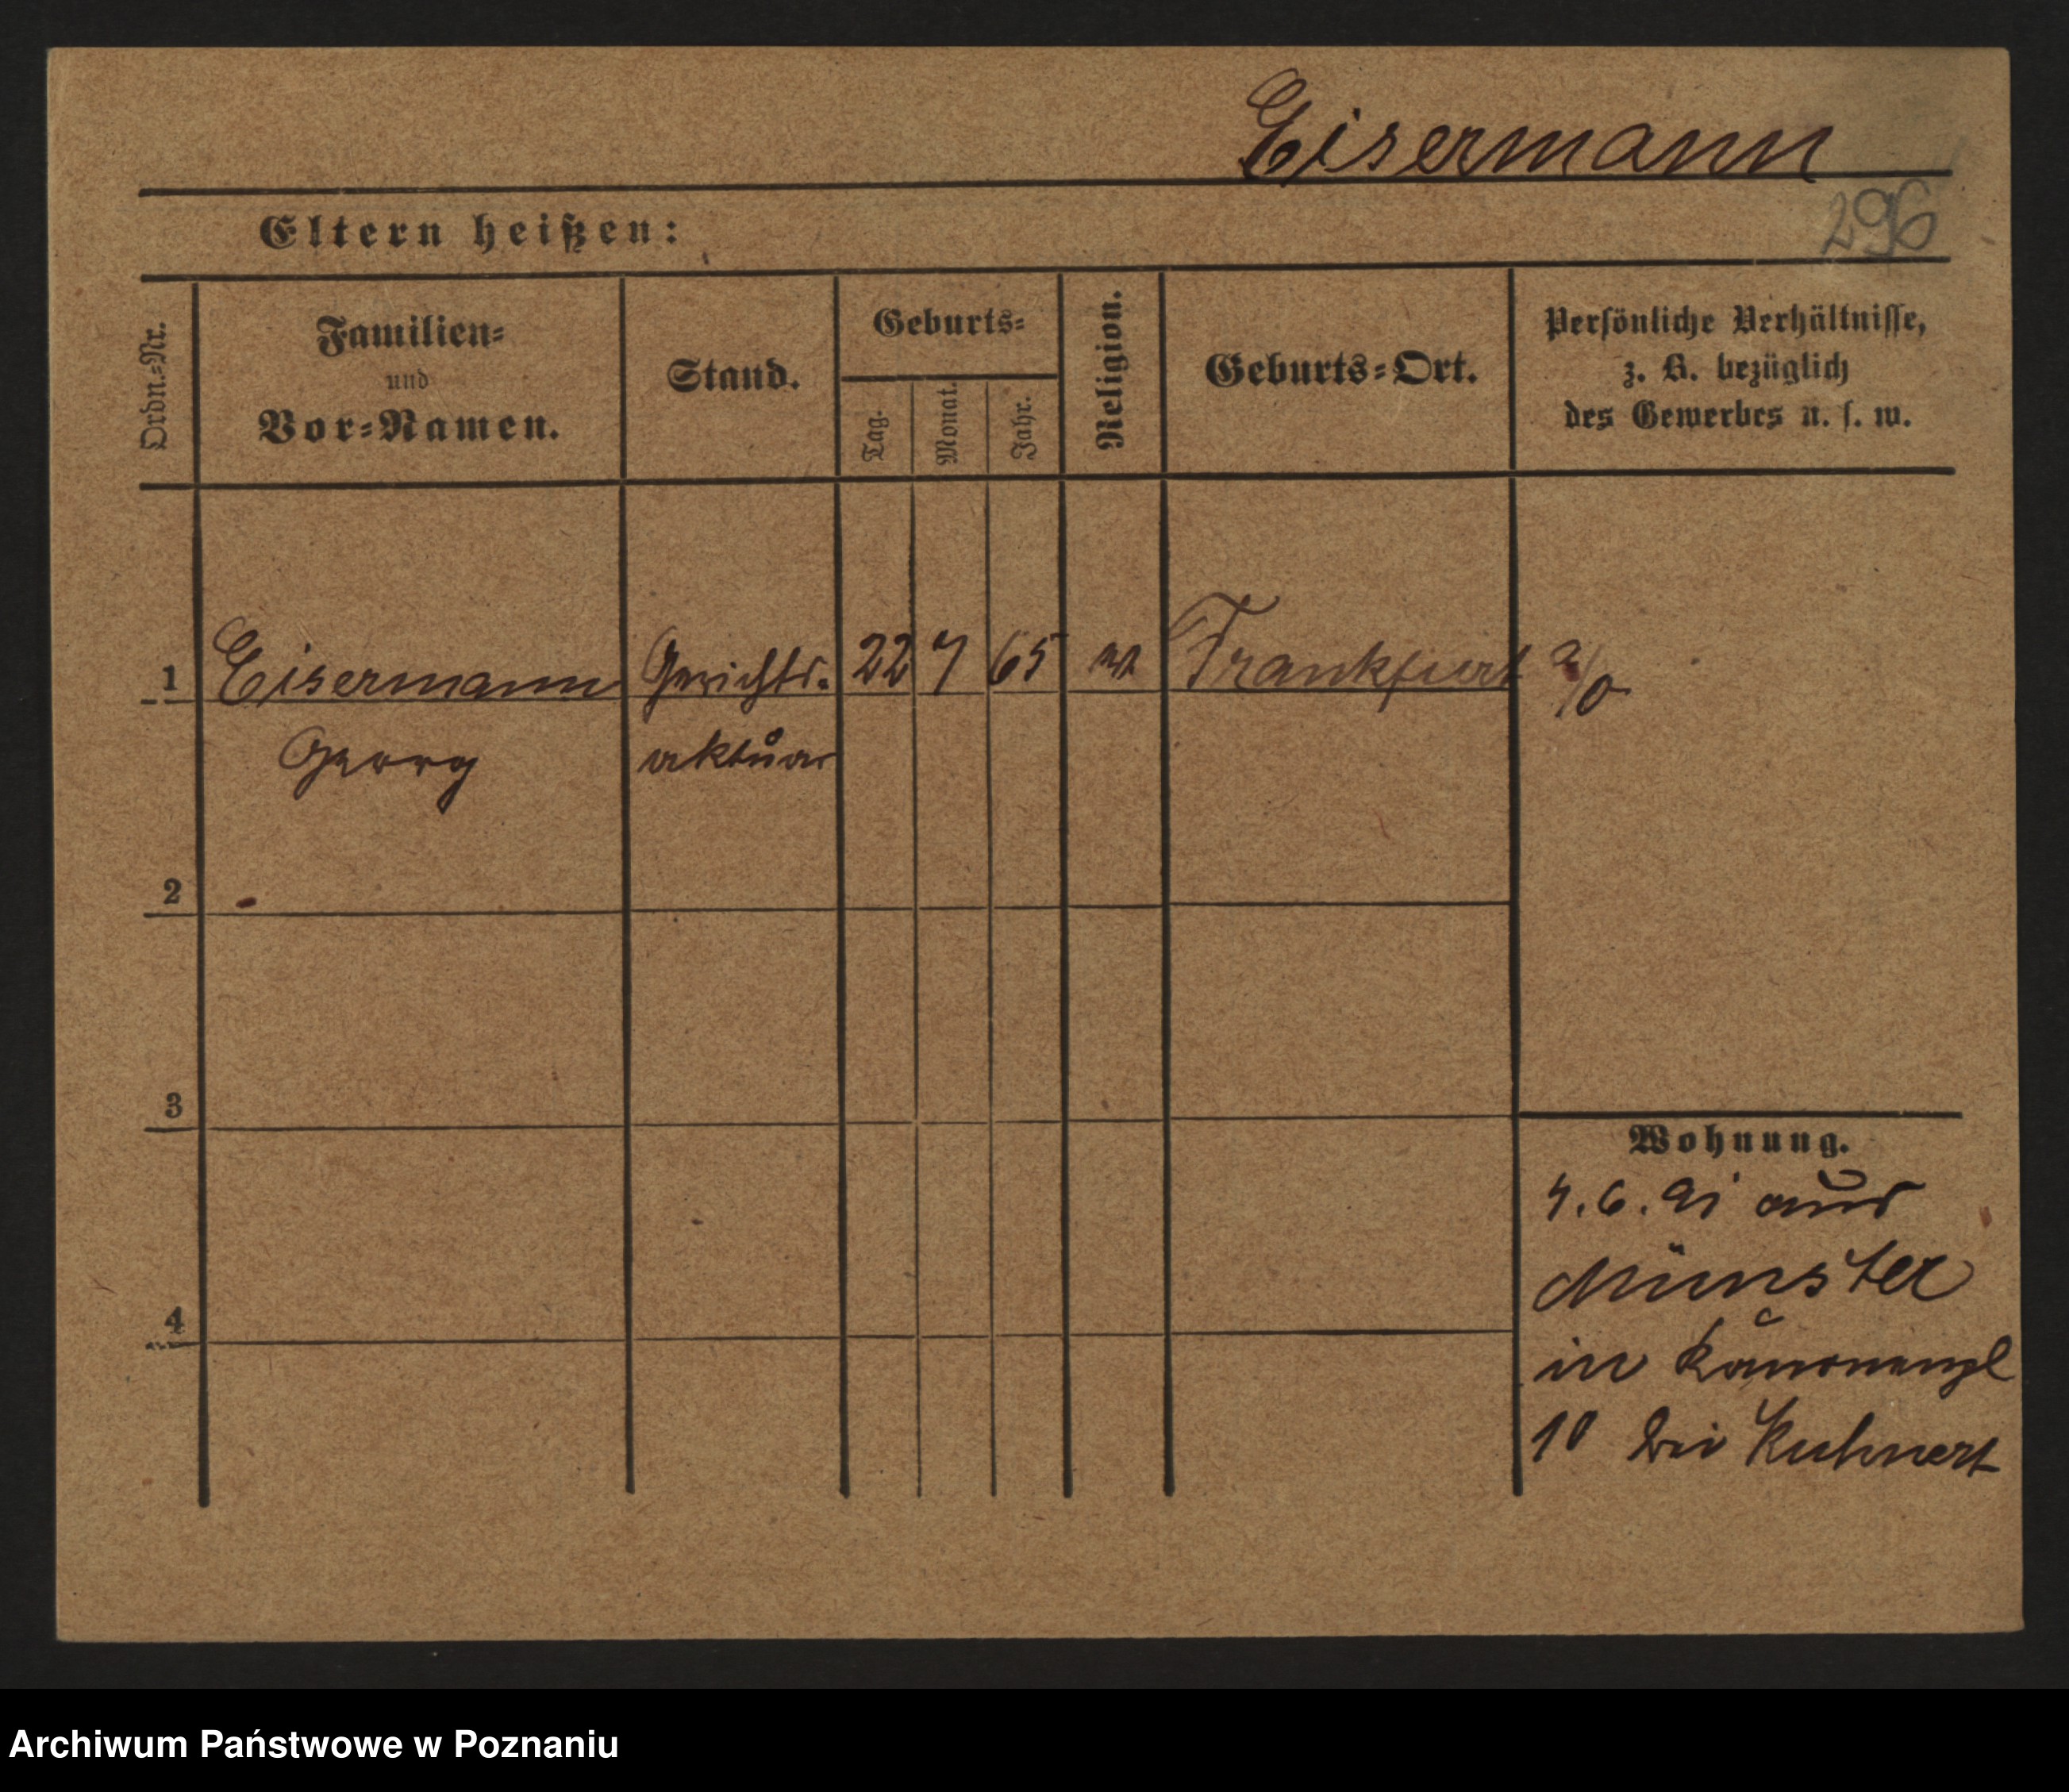 Eisermann
296
Eltern heißen:
Ordn.=Nr.
Familien=
und
Vor=Namen.
Stand.
Geburts=
Tag.
Monat.
Jahr.
Religion.
Geburts=Ort.
Persönliche Verhältnisse,
z. B. bezüglich
des Gewerbes u. s. w.
1 Eisermann Gerichts- 22 7 65 ev Frankfurt a/O
Georg aktuar
2
3
4
Wohnung.
4.6.91 aus
Münster
in Kanonenpl
10 bei Kuhnert
Archiwum Państwowe w Poznaniu